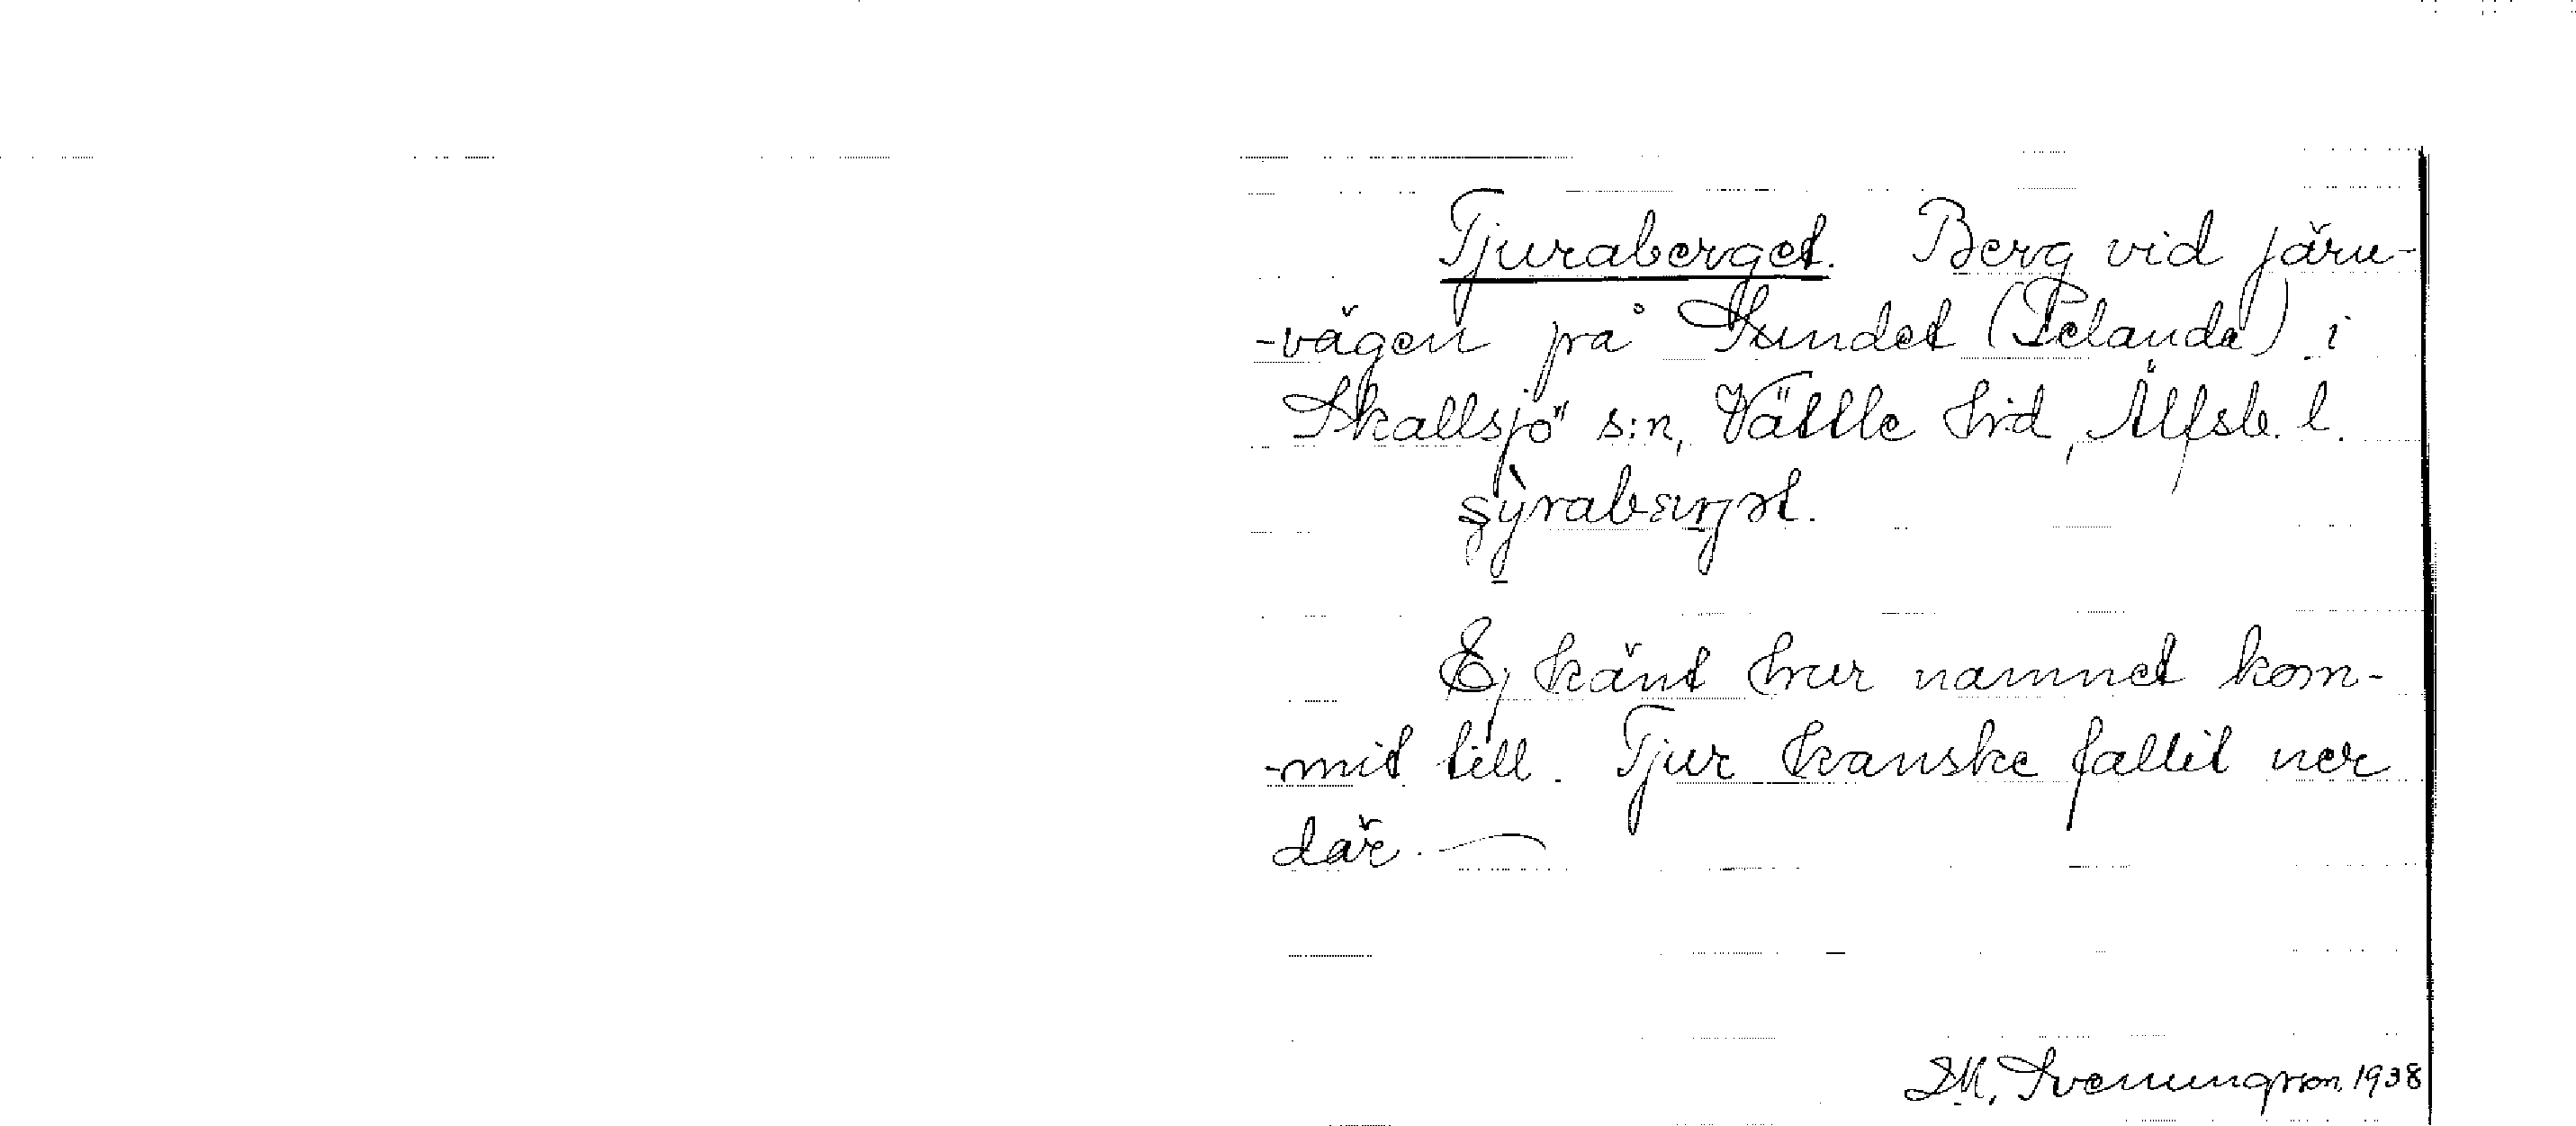 Tjuraberget. Berg vid järn-
-vägen på Sundet (Pelanda) i
Skallsjö s:n, Vättle hrd, Älfsb. l.
Ej känt hur namnet kom-
-mit till. Tjur kanske fallit ner
där.
Svenungsson, 1938